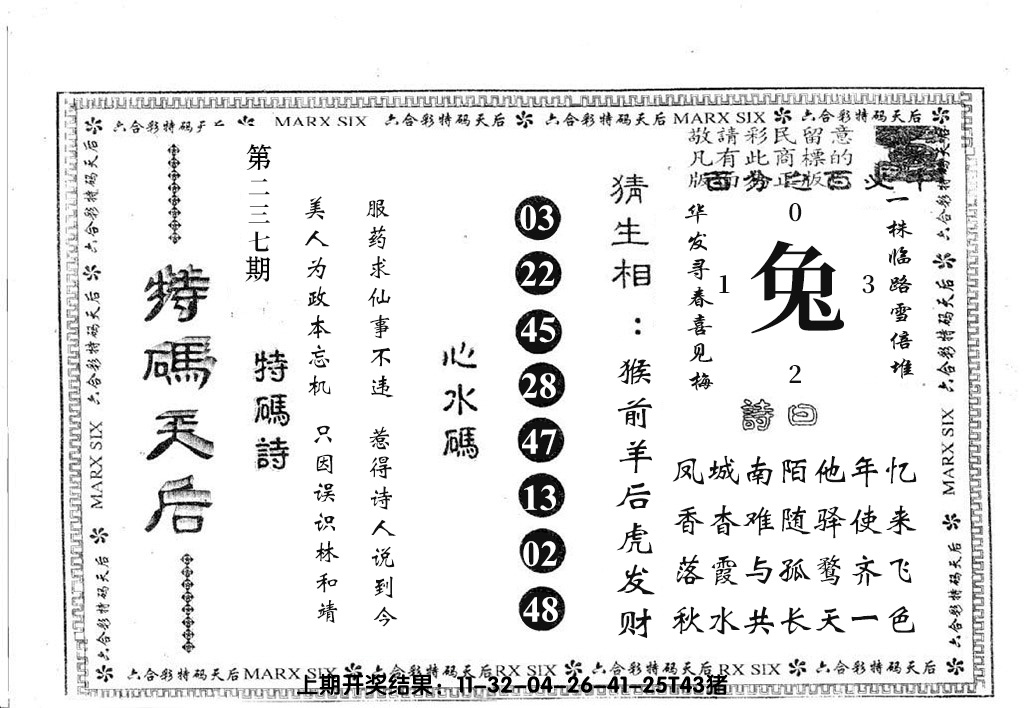 六合彩特码天后 MARX SIX 六合彩特码天后 六合彩特码天后 MARX SIX 六合彩特码天后
敬請彩民留意
凡有此商標的
版面为正版
一株临路雪倍堆
0
1
兔
3
2
华发寻春喜见梅
诗曰
凤城南陌他年忆
香杳难随驿使来
落霞与孤鹜齐飞
秋水共长天一色
猜生相：猴前羊后虎发财
03
22
45
28
47
13
02
48
心水碼
服药求仙事不违 惹得诗人说到今
美人为政本忘机 只因误识林和靖
特碼詩
第二三七期
特碼天后
六合彩特码天后
六合彩特码天后
MARX SIX
六合彩特码天后
六合彩特码天后
六合彩特码天后
MARX SIX
六合彩特码天后
六合彩特码天后 MARX SIX 六合彩特码天后 RX SIX 六合彩特码天后 RX SIX 六合彩特码天后
上期开奖结果：11-32-04-26-41-25T43猪